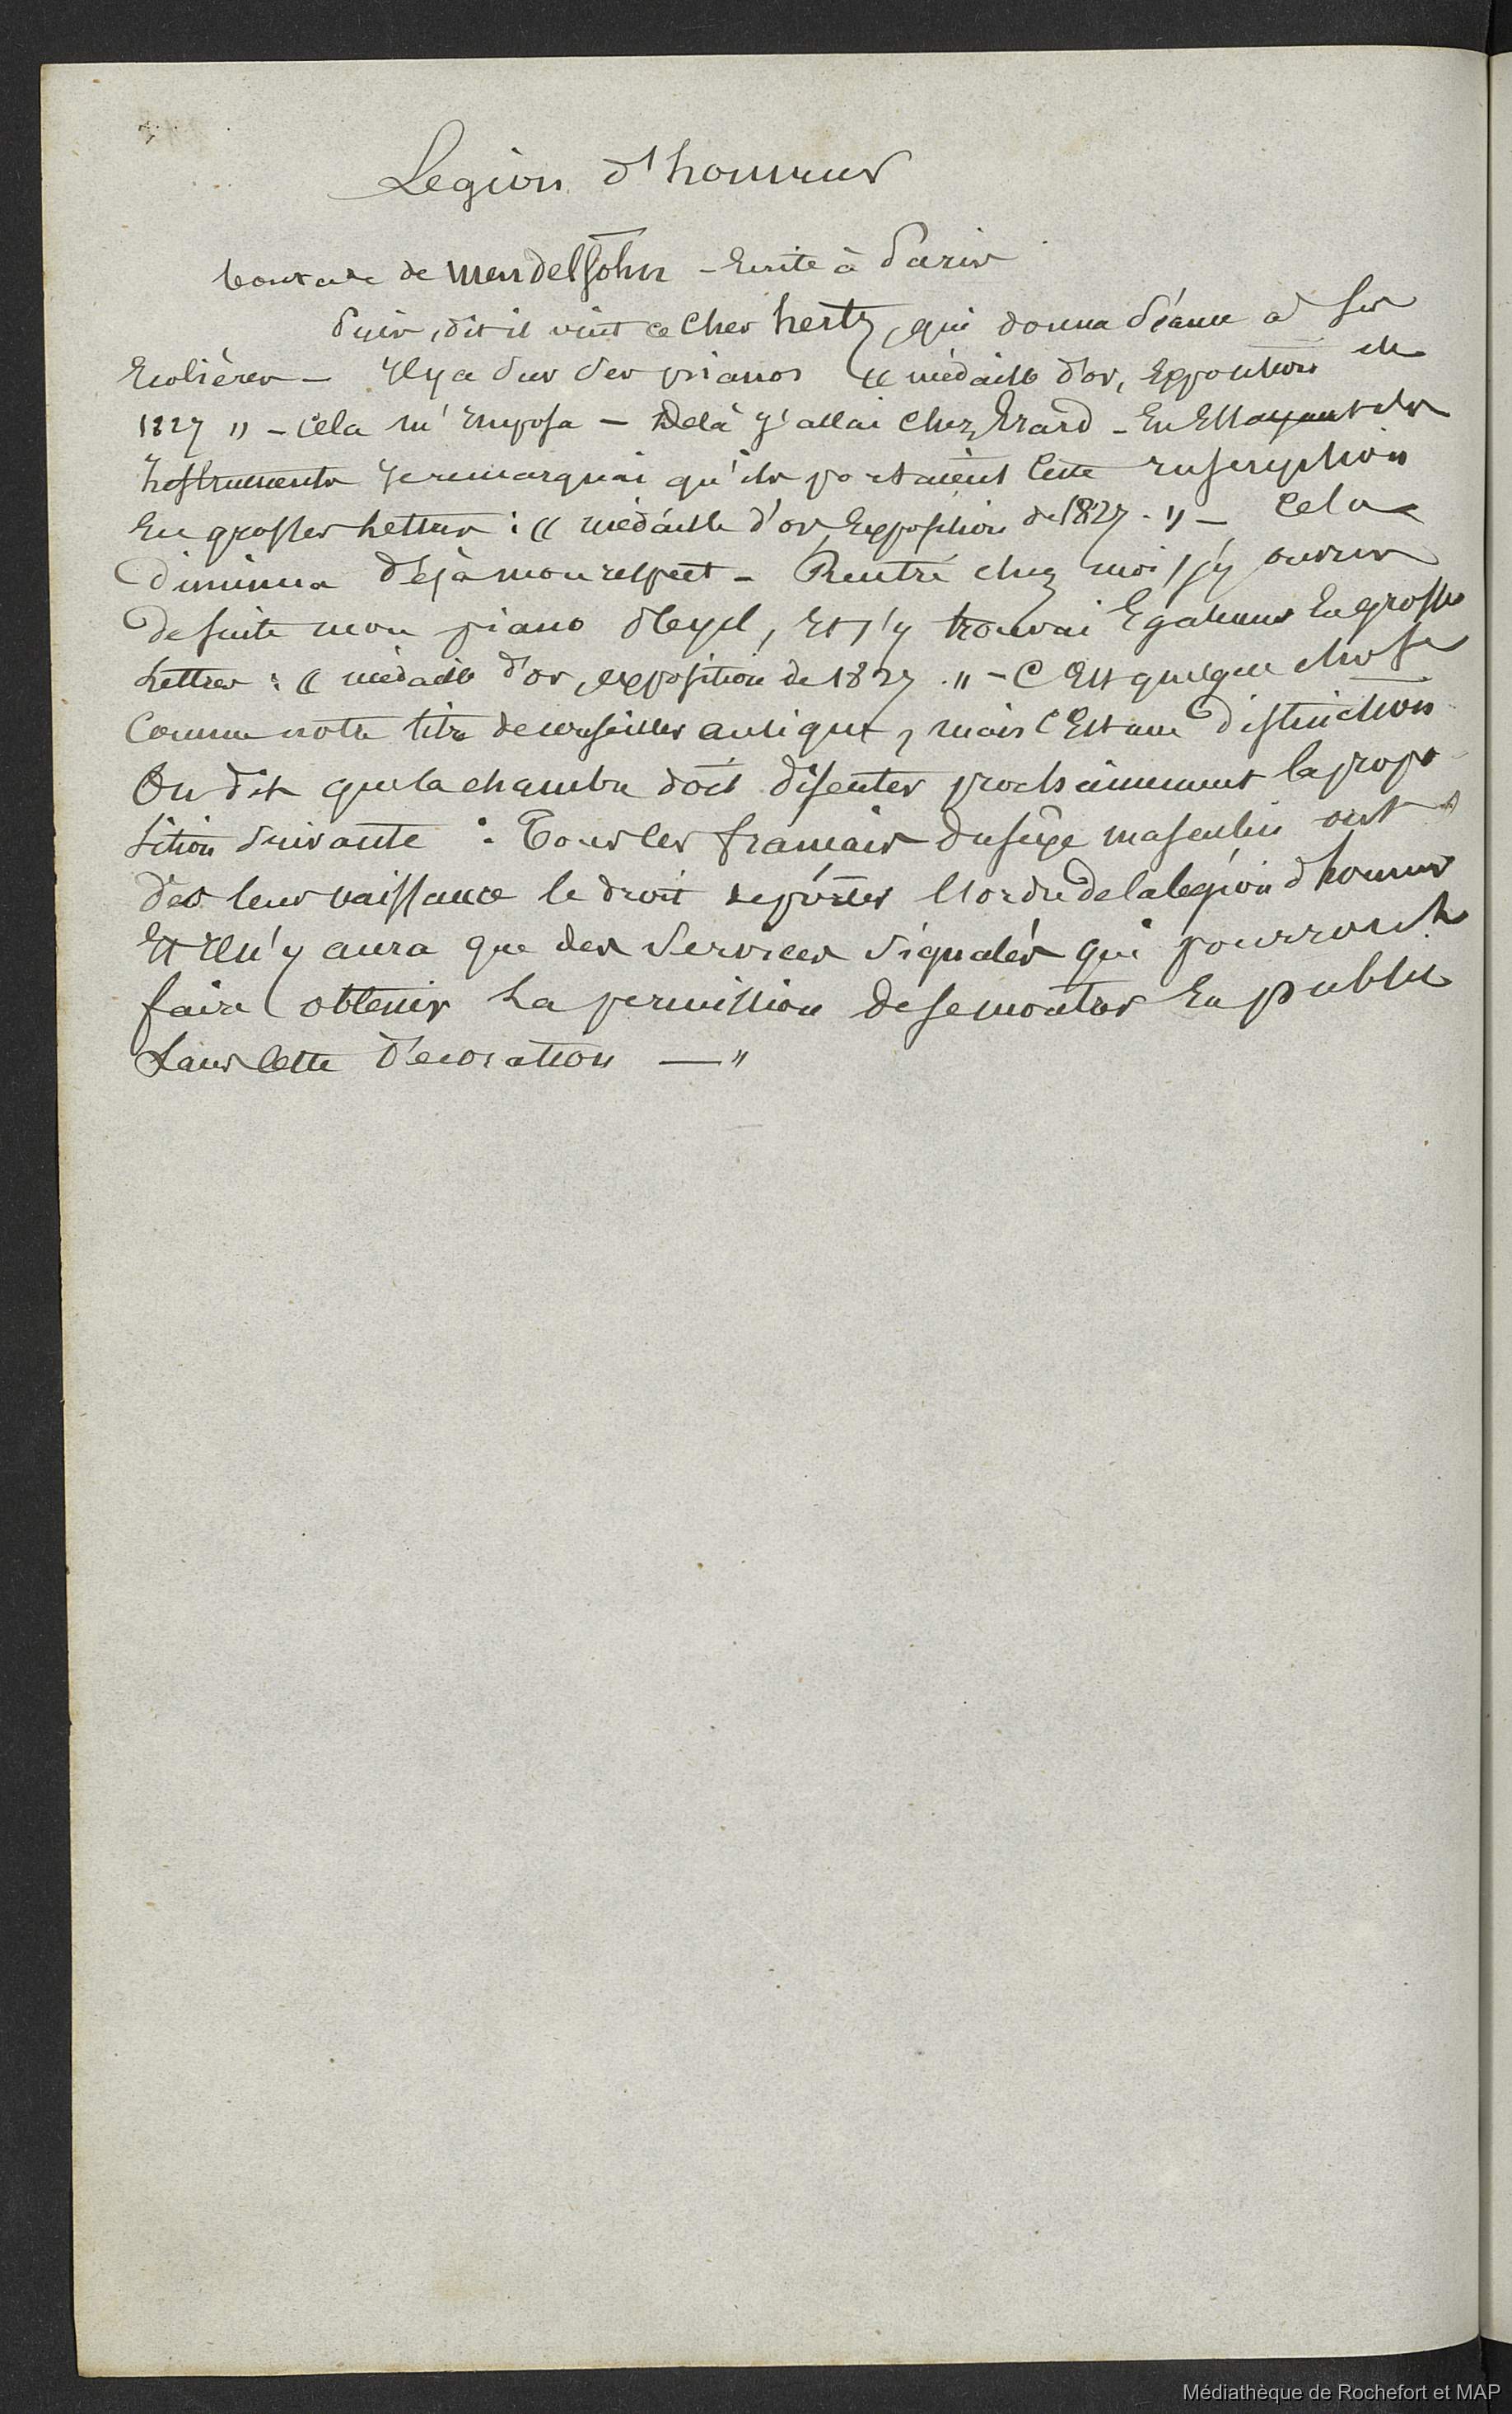 Legion d'honneur
boutade de MendelSohn - Ecrite à Paris
Puis, dit il vint ce Cher hertz, qui donna Séance à ses
Ecolières - Il y a sur ses pianos « médaille d'or, Exposition de
1827 » - cela m'Imposa - De là j'allai chez Erard - En Essayant des
Instruments je remarquai qu'ils portaient cette inscription
En grosses Lettres : « médaille d'or Exposition de 1827. » - Cela
diminua déjà mon respect - Rentré chez moi, j'y ouvris
de suite mon piano Pleyel, Et j'y trouvai Egalement En grosses
Lettres : « médaille d'or, exposition de 1827. » - C'Est quelque chose
Comme notre titre de conseiller aulique, mais c'Est une distinction
On dit que la chambre doit discuter prochainement la propo-
sition suivante : Tous les francais du sexe masculin ont
dès leur naissance le droit de porter l'ordre de la légion d'honneur
Et Il n'y aura que des Services Signalés qui pourront
faire obtenir La permission de se montrer En public
Sans cette décoration — "
Médiathèque de Rochefort et MAP